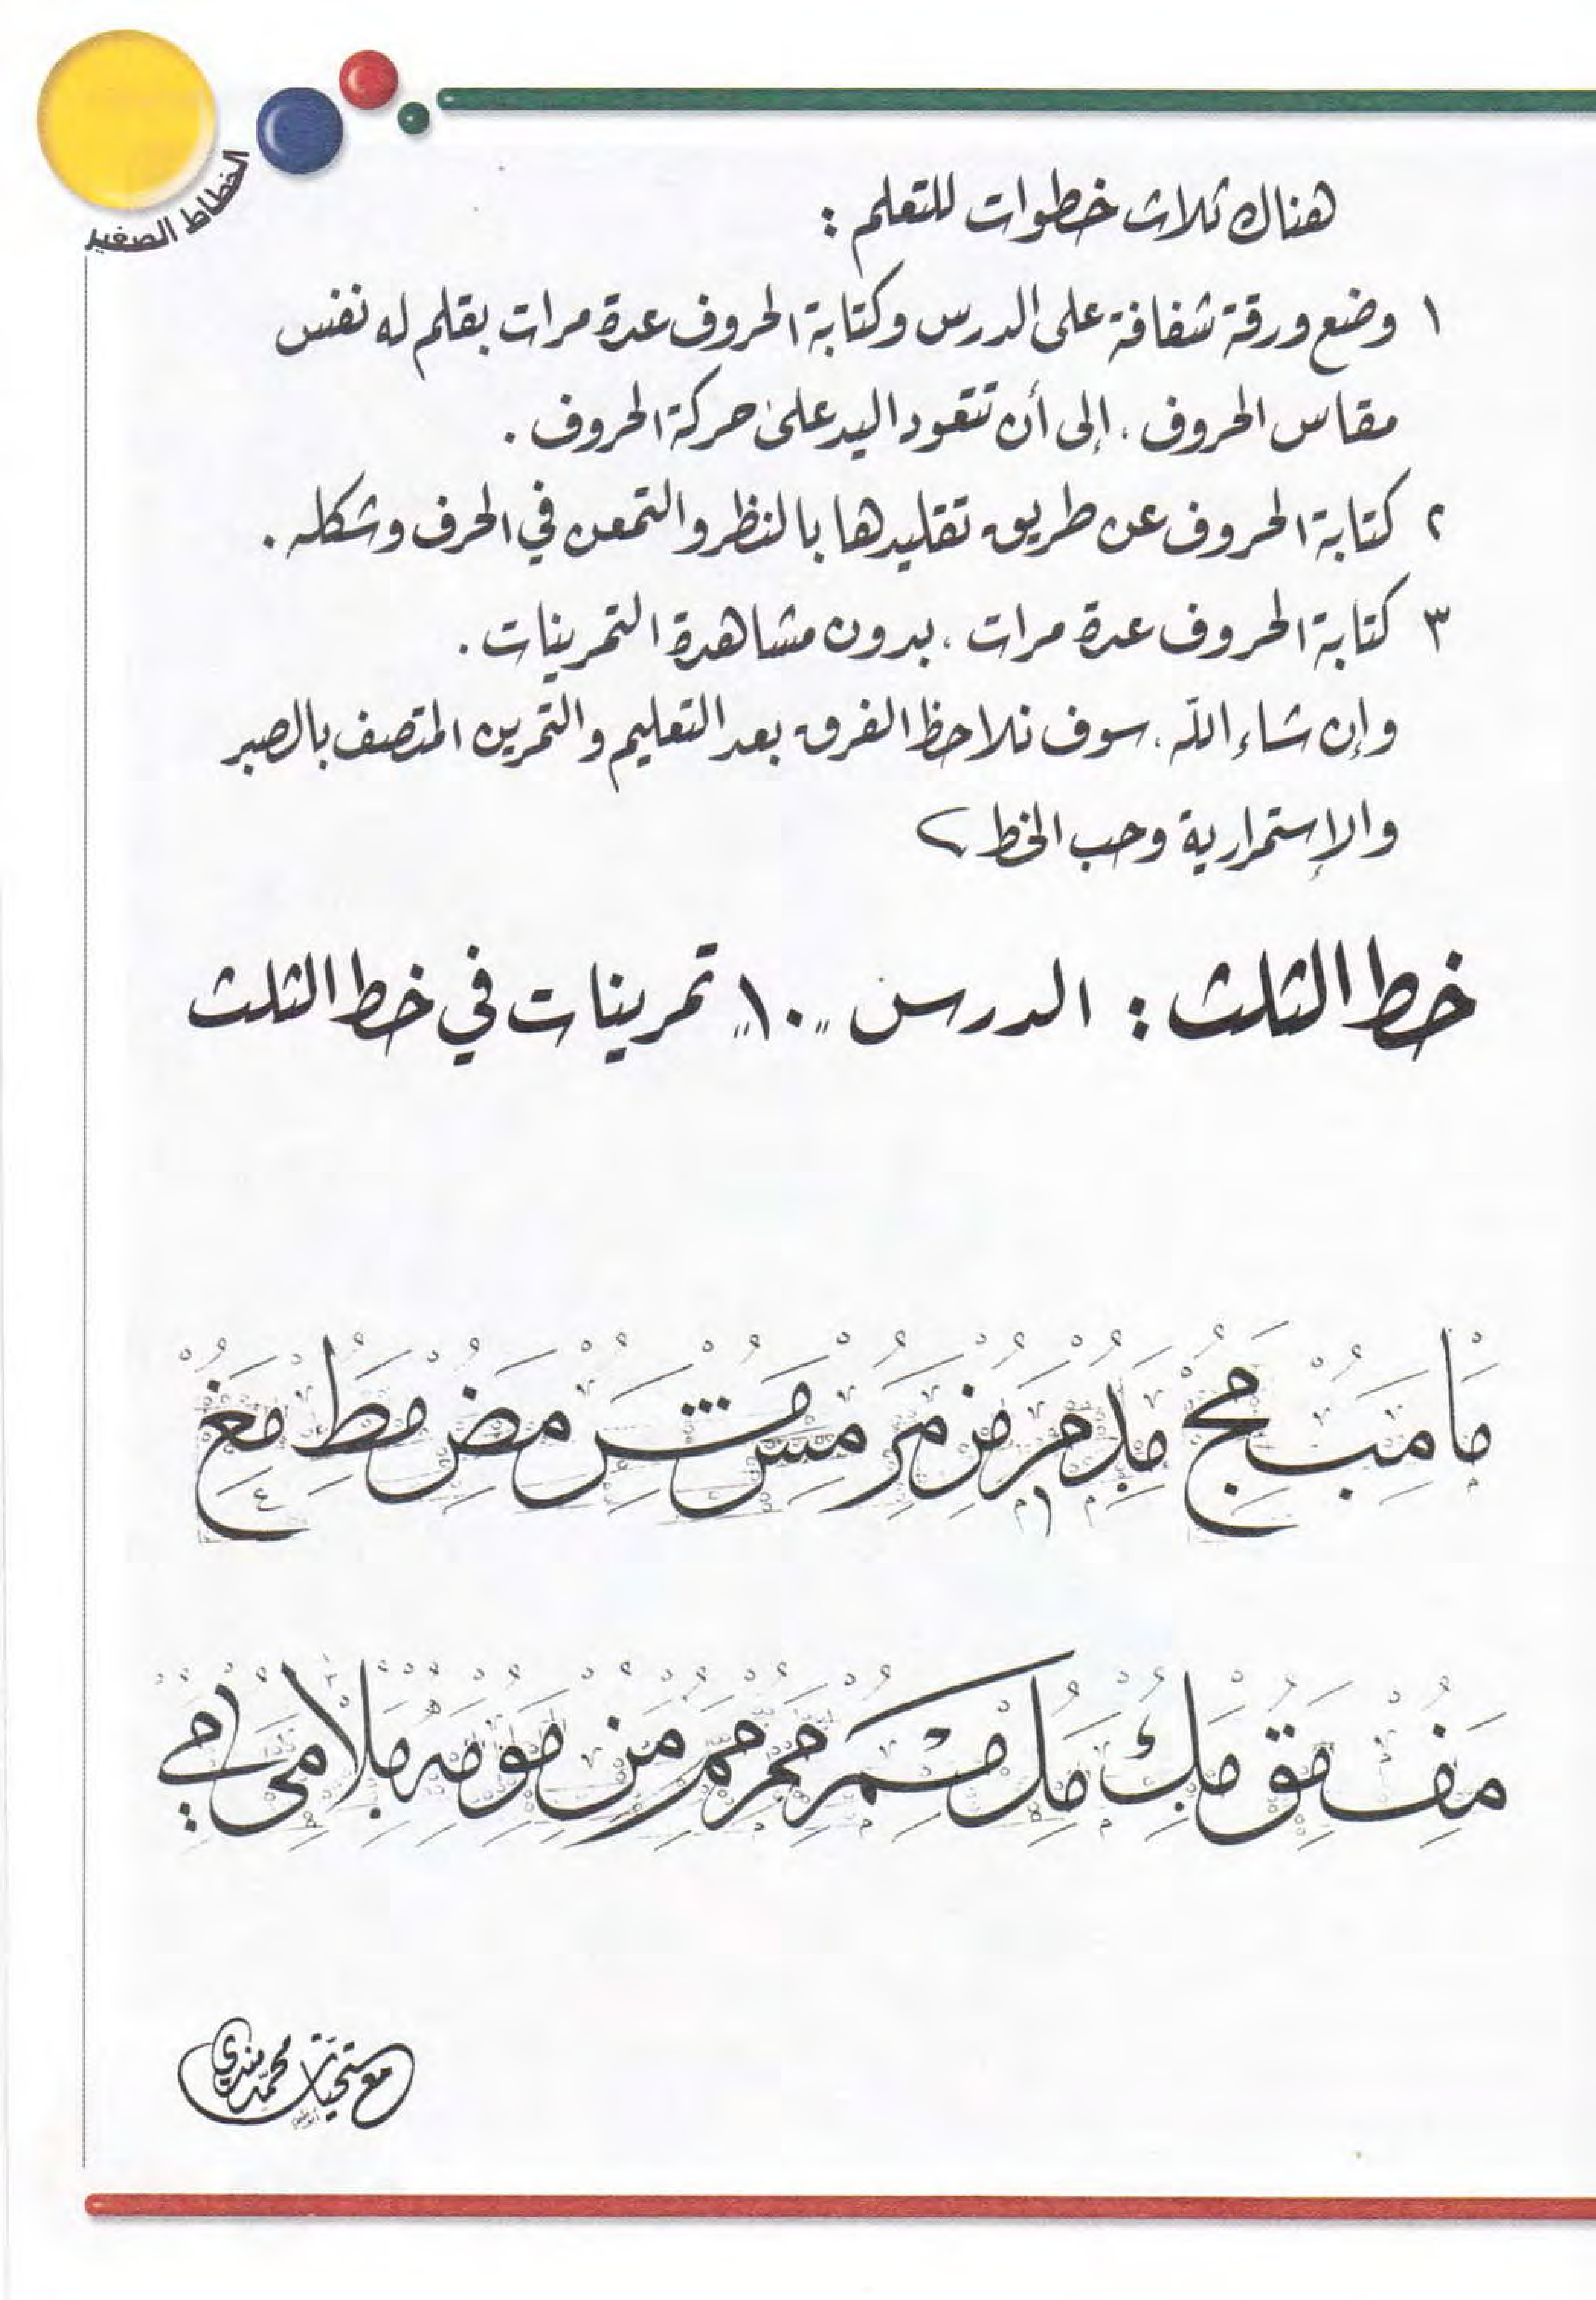 الخطاط الصغير
هناك ثلاث خطوات للتعلم :
١ وضع ورقة شفافة على الدرس وكتابة الحروف عدة مرات بقلم له نفس
مقاس الحروف ، إلى أن تتعود اليد على حركة الحروف .
٢ كتابة الحروف عن طريق تقليدها بالنظر والتمعن في الحرف وشكله .
٣ كتابة الحروف عدة مرات ، بدون مشاهدة التمرينات .
وإن شاء الله ، سوف نلاحظ الفرق بعد التعليم والتمرين المتصف بالصبر
والإستمرارية وحب الخط
خط الثلث : الدرس "١٠" تمرينات في خط الثلث
ما مب مج مد مر مز مر مس مش مض مط مغ
مف مق مك مل مم من مو مه ملا مي
مع تحيات محمد مندي